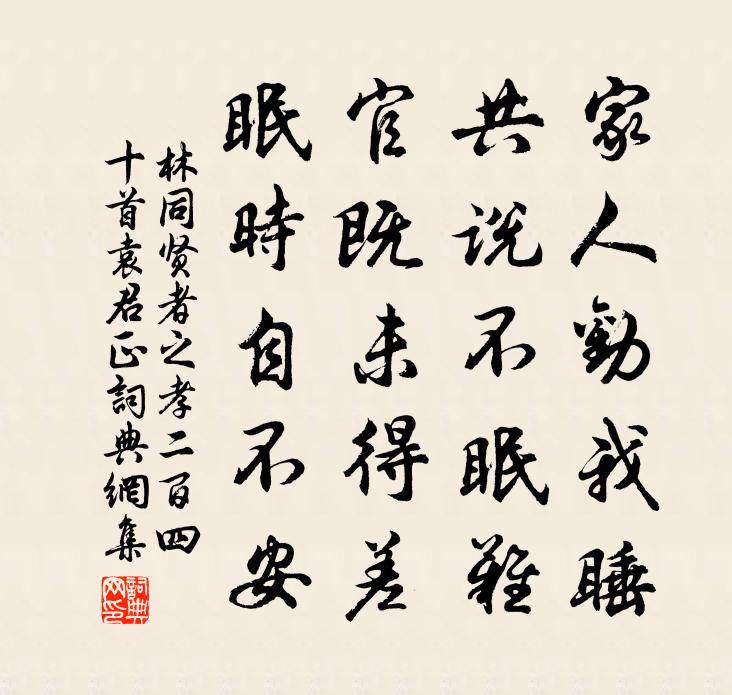 家人勸我睡
共说不眠難
官既未得差
眠時自不安
林同贤者之孝二百四
十首袁君正詞典網集
詞典網印